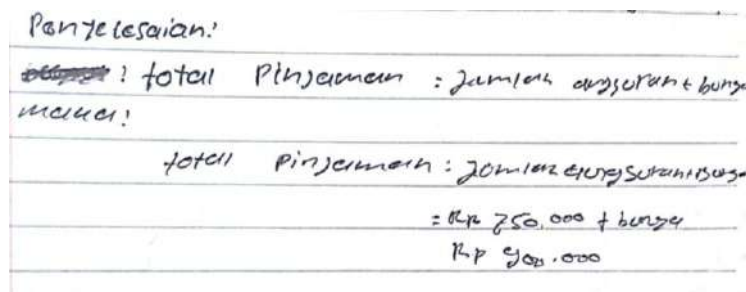 Penyelesaian:
: total Pinjaman : Jumlah angsuran + bunga
maka:
total Pinjaman : Jomlah angsuran + Bunga
= Rp 750.000 + bunga
Rp 900.000